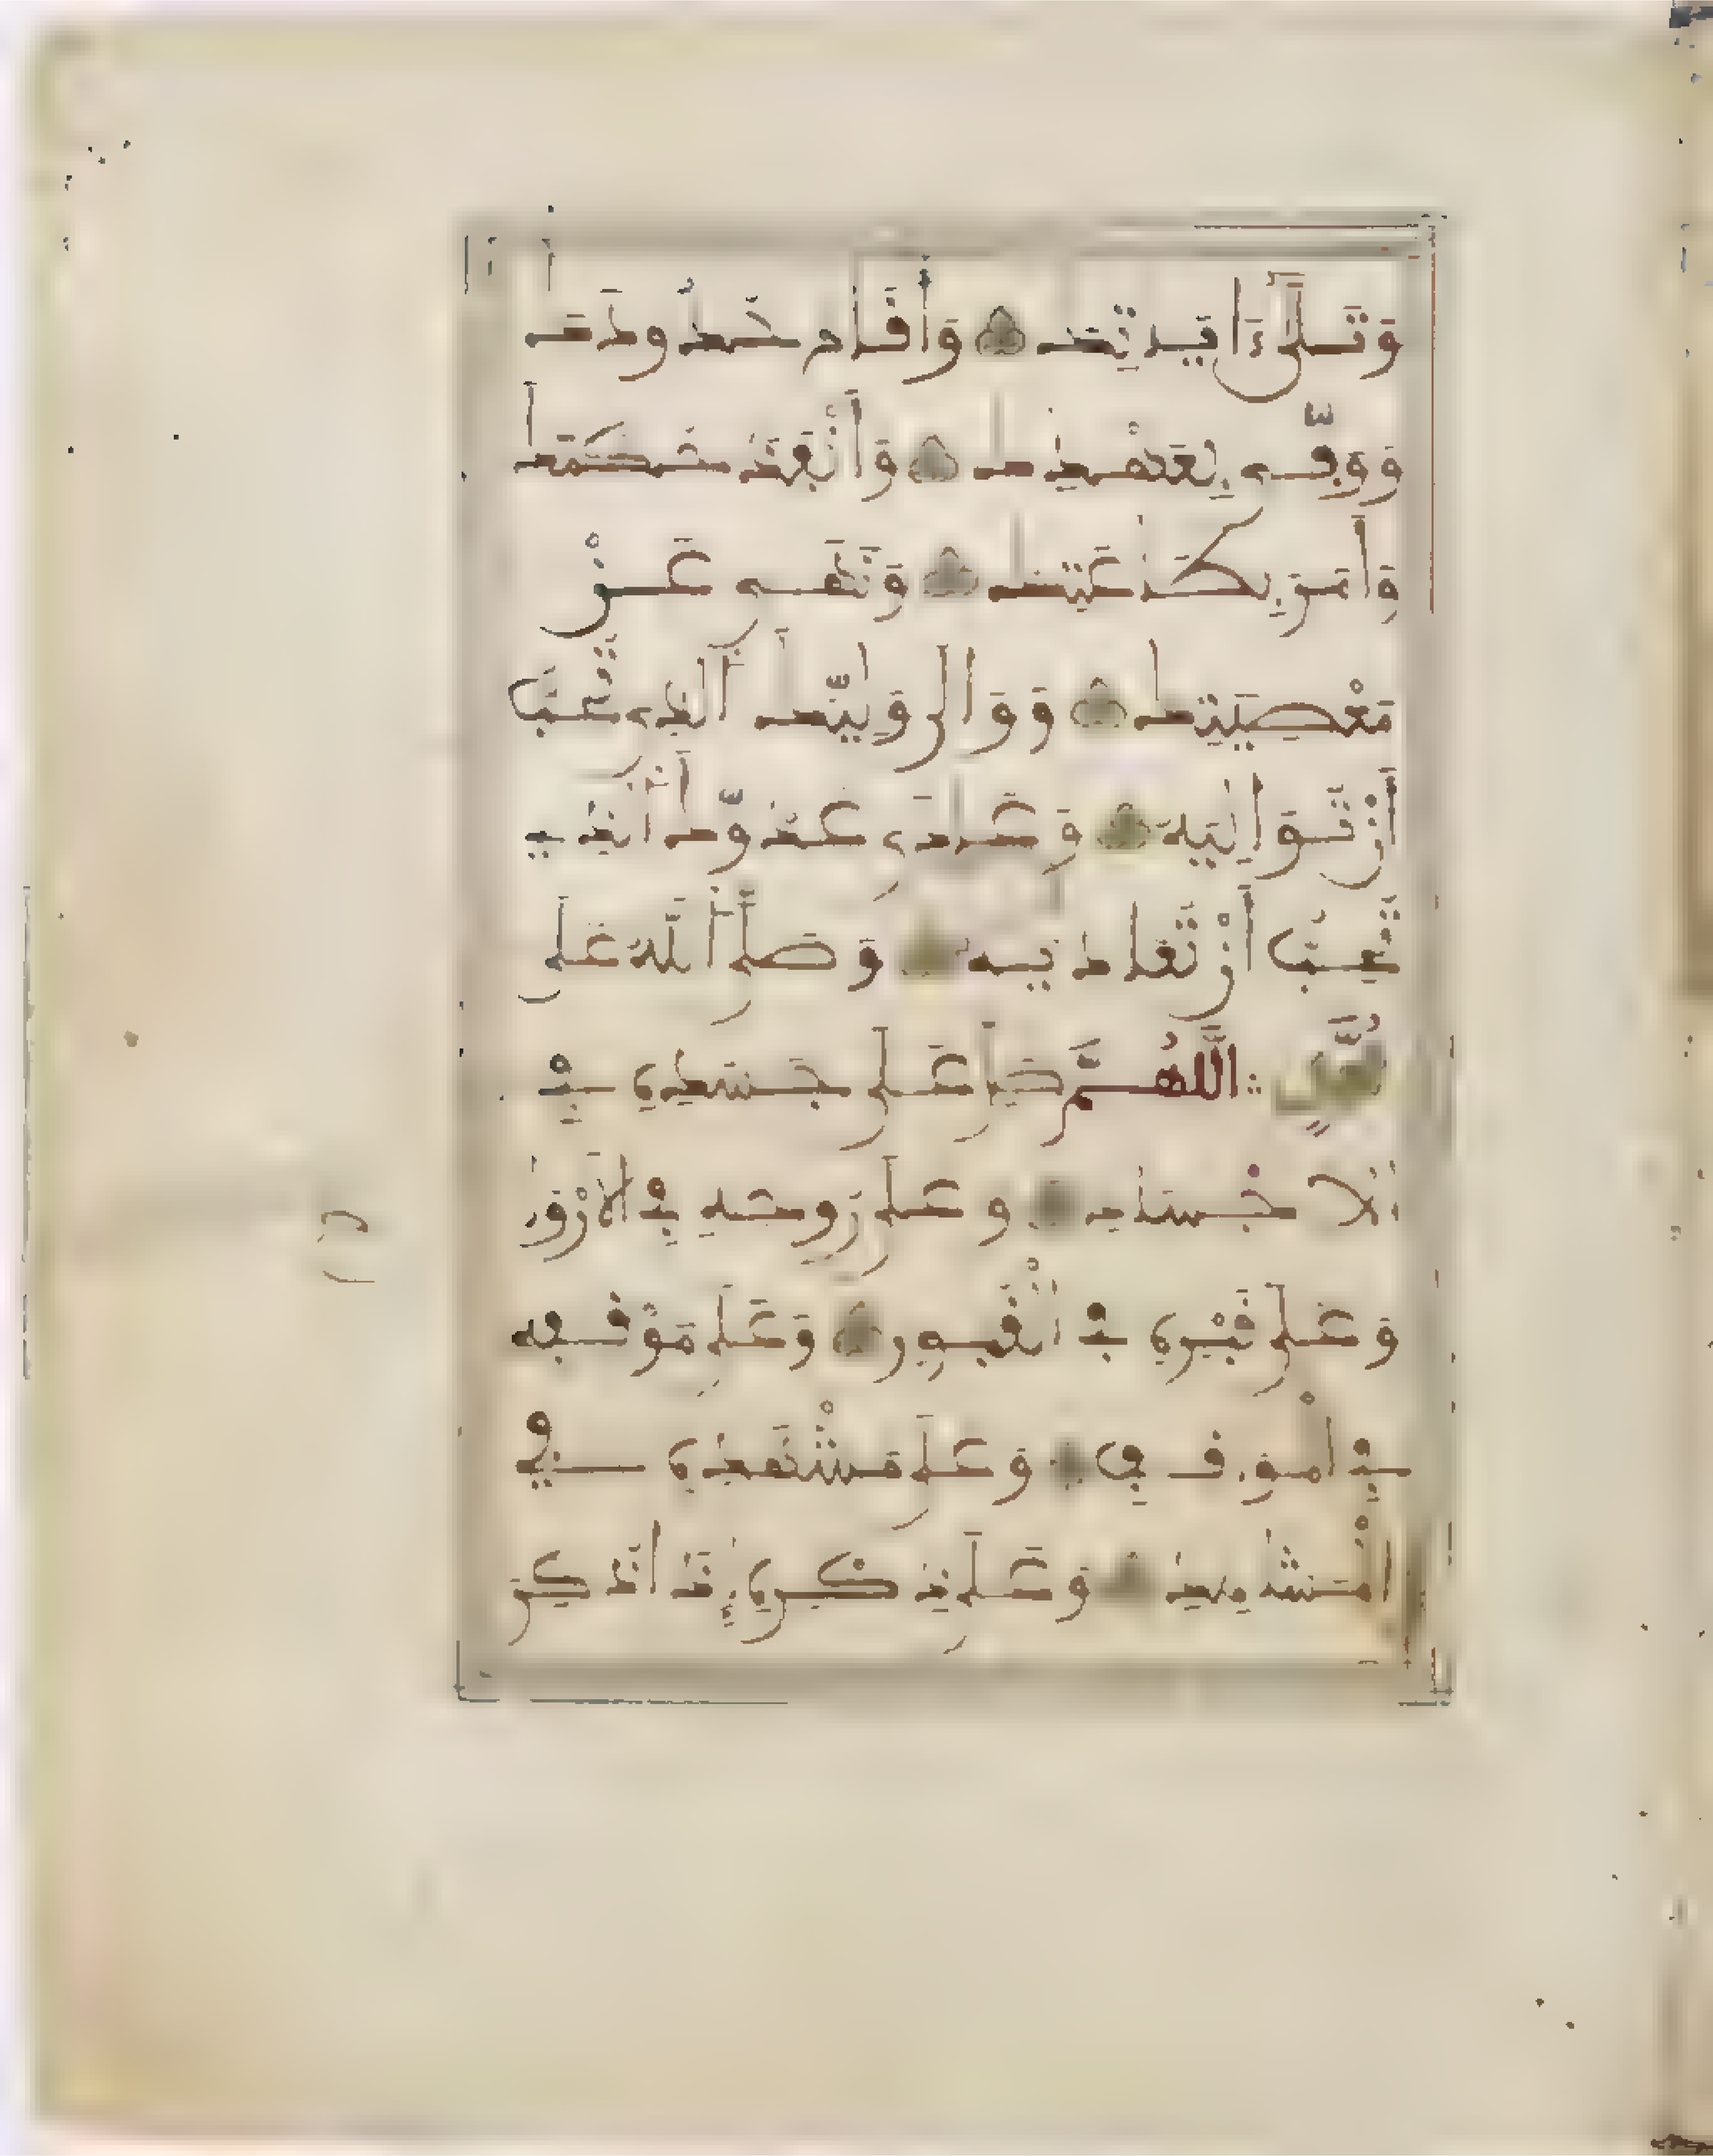 وَتَلَى ءَايَاتِكَ وَأَقَامَ حُدُودَكَ
وَوَفَّى بِعَهْدِكَ وَأَنْفَذَ حُكْمَكَ
وَأَمَرَ بِطَاعَتِكَ وَنَهَى عَنْ
مَعْصِيَتِكَ وَوَالَى وَلِيَّكَ ٱلَّذِي تُحِبُّ
أَنْ تُوَالِيَهُ وَعَادَى عَدُوَّكَ ٱلَّذِي
تُحِبُّ أَنْ تُعَادِيَهُ وَصَلَّى ٱللَّهُ عَلَى
مُحَمَّدٍ اللَّهُمَّ صَلِّ عَلَى جَسَدِهِ فِي
ٱلْأَجْسَادِ وَعَلَى رُوحِهِ فِي ٱلْأَرْوَاحِ
وَعَلَى قَبْرِهِ فِي ٱلْقُبُورِ وَعَلَى مَوْقِفِهِ
فِي ٱلْمَوَاقِفِ وَعَلَى مَشْهَدِهِ فِي
ٱلْمَشَاهِدِ وَعَلَى ذِكْرِهِ إِذَا ذُكِرَ